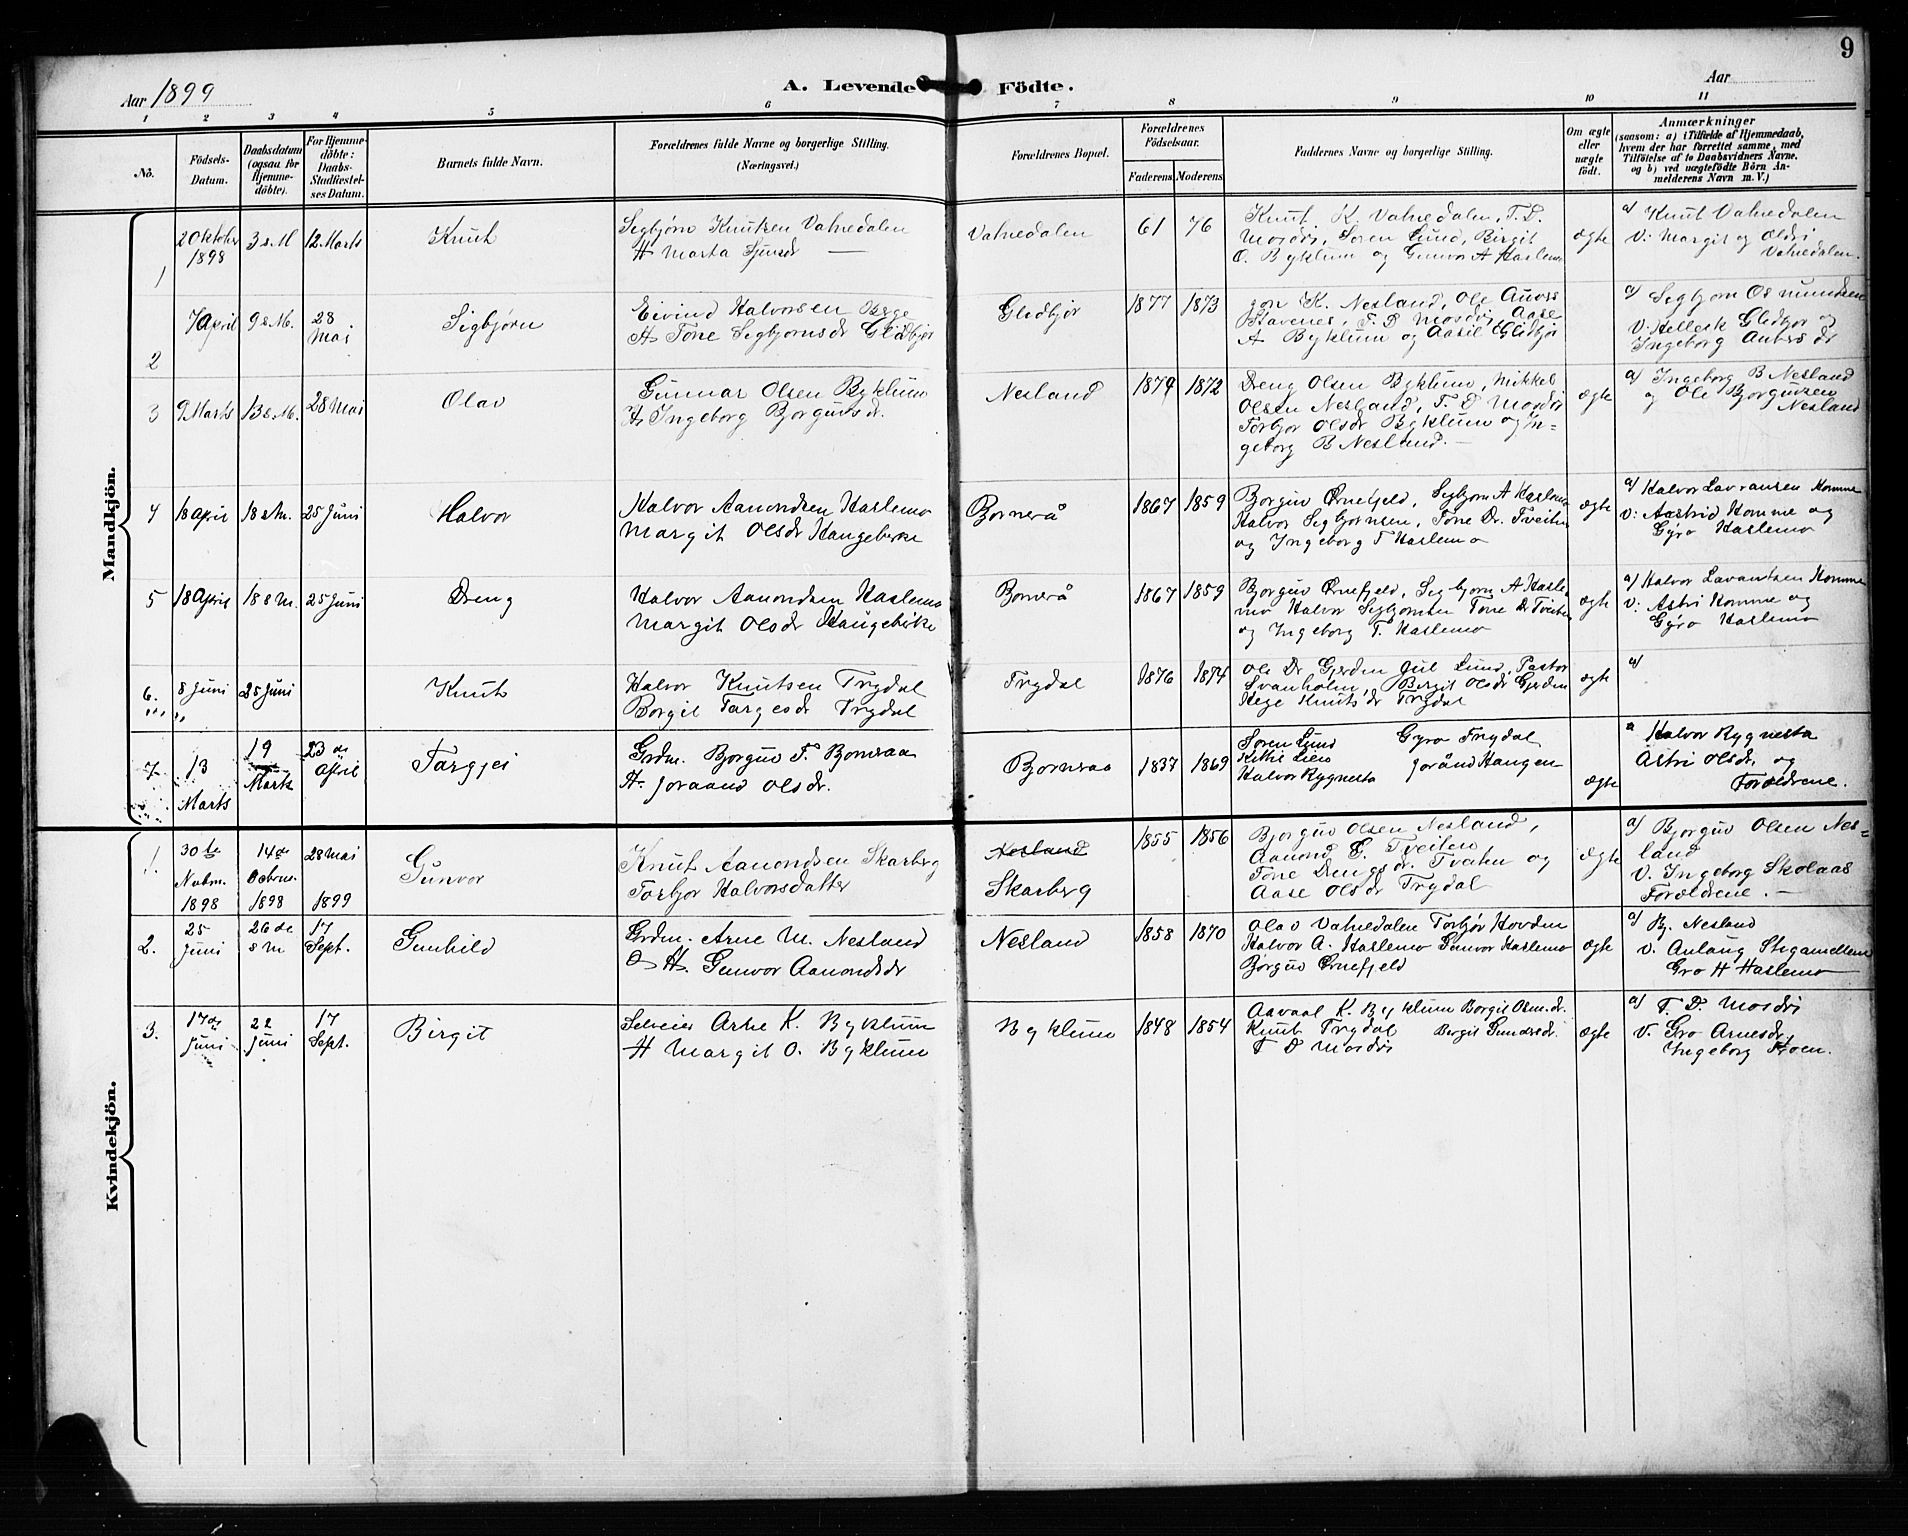 9
Aar 1899
A. Levende Födte.
Aar
1 2 3 4 5 6 7 8 9 10 11
No.
Födsels-Datum.
Daabsdatum (ogsaa for Hjemmedöbte).
For Hjemmedöbte: Daabs-Stadfæstelses Datum.
Barnets fulde Navn.
Forældrenes fulde Navne og borgerlige Stilling.
(Næringsvei.)
Forældrenes Bopæl.
Forældrenes Födselsaar.
Faderens. Moderens.
Faddernes Navne og borgerlige Stilling.
Om ægte eller uægte födt.
Anmærkninger
(saasom: a) i Tilfælde af Hjemmedaab, hvem der har forrettet samme, med Tilföielse af to Daabsvidners Navne, og b) ved uægtefödte Börn Anmelderens Navn m. V.)
Mandkjön.
1
2 Oktober 1898
3 s. M
12 Marts
Knut
Sigbjørn Knutsen Vatnedalen
H Marta Tjunsdr —
Vatnedalen
61 76
Knut K. Vatnedalen, T. D.
Mosdöi, Soren Lund, Birgit
O. Byklum og Gunvor A Haslemo
ægte
a) Knut Vatnedalen
V: Margit og Oldri
Vatnedalen.
2
7 April
9 s. M.
28 Mai
Sigbjørn
Eivind Halvorsen Berge
H Tone Sigbjørnsdr Glidbjør
Glidbjør
1877 1873
Jon K. Nesland, Ole
Stavenes, T. D Mosdöi, Aase
A Byklum og Aasil Glidbjör
a) Sigbjorn Osmundsen
V: Hellesk Glidbjor og
Ingeborg dr
3
9 Marts
13 s. M.
28 Mai
Olav
Gunnar Olsen Byklum
H. Ingeborg Bjorgunsdr.
Nesland
1874 1872
Dreng Olsen Byklum, Mikkel
Olsen Nesland, T. D Mosdöi
Torbjør Olsdr Byklum og In-
geborg B Nesland. —
ægte
a) Ingeborg B Nesland
og Ole Bjorgunsen
Nesland
4
18 April
18 s. M.
25 Juni
Halvor
Halvor Aamondsen Haslemo
Margit Olsdr Haugeberke
Bjorneraa
1867 1859
Borguv Ørnefjeld, Sigbjorn A Haslemo
Halvor Sigbjornsen, Tone Dr. Tveiten
og Ingeborg T Haslemo
ægte
a) Halvor Lavransen Homme
V: Aastrid Homme og
Gyro Haslemo
5
18 April
18 s M.
25 Juni
Dreng
Halvor Aamondsen Haslemo
Margit Olsdr Haugeberke
Borneraa
1867 1859
Bjorguv Ørnefjeld, Sigbjorn A Hasle-
mo Halvor Sigbjornsen Tone Dr Tveiten
og Ingeborg T. Haslemo
ægte
a) Halvor Lavantsen Homme
V: Astri Homme og
Gyro Haslemo
6.
8 Juni
25 Juni
Knut
Halvor Knutsen Trydal
Borgit Targesdr Trydal
Trydal
1876 1874
Ole Dr. Gjerden Jul Lund, Pastor
Svanholm, Birgit Olsdr Gjerden
Hege Knutsdr Trydal
ægte
a)
7.
13 Marts
19 Marts
23 de April
Targjei
Grdm. Bjorguv T. Bjornraa
H. Joraand Olsdr.
Bjornraa
1837 1869
Soren Lund Gyro Trydal
Kittil Lien Joränd Haugen
Halvor Rygnesta
ægte
a Halvor Rygnesta
Astri Olsdr. og
Forældrene.
Kvindekjön.
1.
30te Nvbm. 1898
14de 1898
28 Mai 1899
Gunvor
Knut Aamondsen Skarberg
Torbjor Halvorsdatter
Nesland
Skarberg
1855 1856
Bjorguv Olsen Nesland,
Aamond G. Tveiten
Tone Drengsdr. Tveiten og
Aase Olsdr Trydal
ægte
a) Bjorguv Olsen Nes-
land
V. Ingeborg Skolaas
Forældrene. —
2.
25 Juni
26 de s M
17 Sept.
Gunhild
Grdm. Arne M. Nesland
H. Gunvor Aamondsdr
Nesland
1858 1870
Olav Vatnedalen Torbjør Hovden
Halvor A. Haslemo Gunvor Haslemo
Bjørguv Ørnefjeld
ægte
a) Bj. Nesland
v. Anlaug
Gro H Haslemo
3.
17de Juni
22 Juni
17 Sept.
Birgit
Selveier Arne K. Byklum
H Margit O. Byklum
Byklum
1848 1854
Aavaal K. Byklum Borgit Osm.dr.
Knut Trydal Borgit Gunarsdr.
T D Mosdöi
ægte
a) T. D. Mosdöi
V. Gro Arnesdr
Ingeborg Froen.